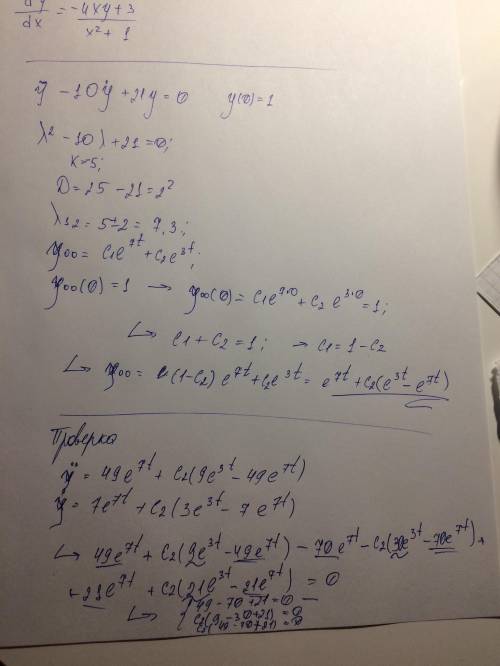 dy/dx = -4xy+3 / x²+1
ÿ - 10ẏ + 21y = 0   y(0)=1
λ² - 10λ + 21 = 0;
K=5;
D = 25 - 21 = 2²
λ1,2 = 5±2 = 7,3;
yoo = C1e^7t + C2e^3t;
yoo(0) = 1 → yoo(0) = C1e^7·0 + C2 e^3·0 = 1;
↳ C1 + C2 = 1; → C1 = 1 - C2
↳ yoo = (1-C2) e^7t + C2e^3t = e^7t + C2(e^3t - e^7t)
Проверка
ÿ = 49e^7t + C2(9e^3t - 49e^7t)
ẏ = 7e^7t + C2(3e^3t - 7e^7t)
↳ 49e^7t + C2(9e^3t - 49e^7t) - 70e^7t - C2(30e^3t - 70e^7t) +
+ 21e^7t + C2(21e^3t - 21e^7t) = 0
↳ { 49 - 70 + 21 = 0
C2(9 - 30 + 21) = 0
C2(49 - 70 + 21) = 0